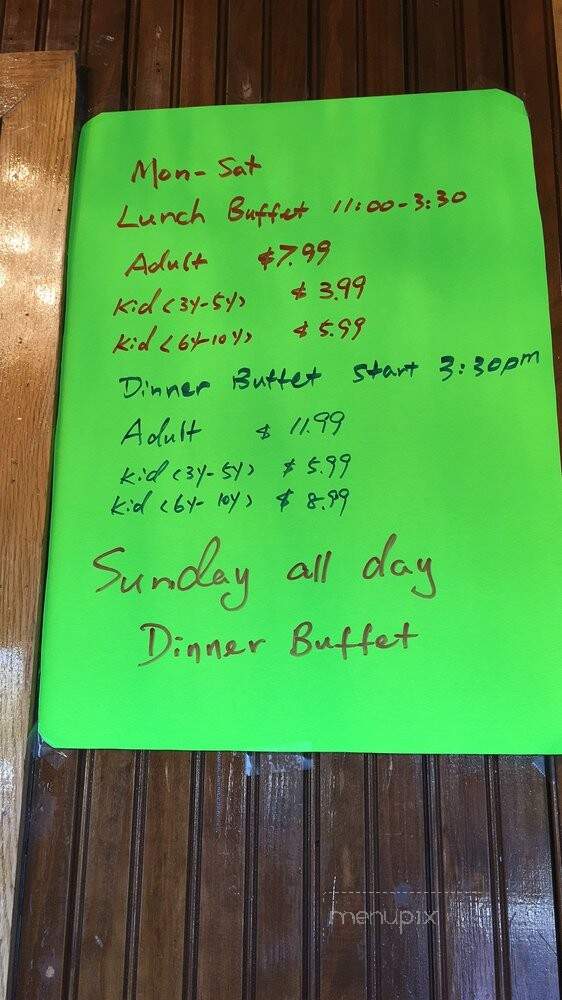 Mon-Sat
Lunch Buffet 11:00-3:30
Adult $7.99
Kid (3Y-5Y) $3.99
Kid (6Y-10Y) $5.99
Dinner Buffet start 3:30pm
Adult $11.99
Kid (3Y-5Y) $5.99
Kid (6Y-10Y) $8.99
Sunday all day
Dinner Buffet
menupix